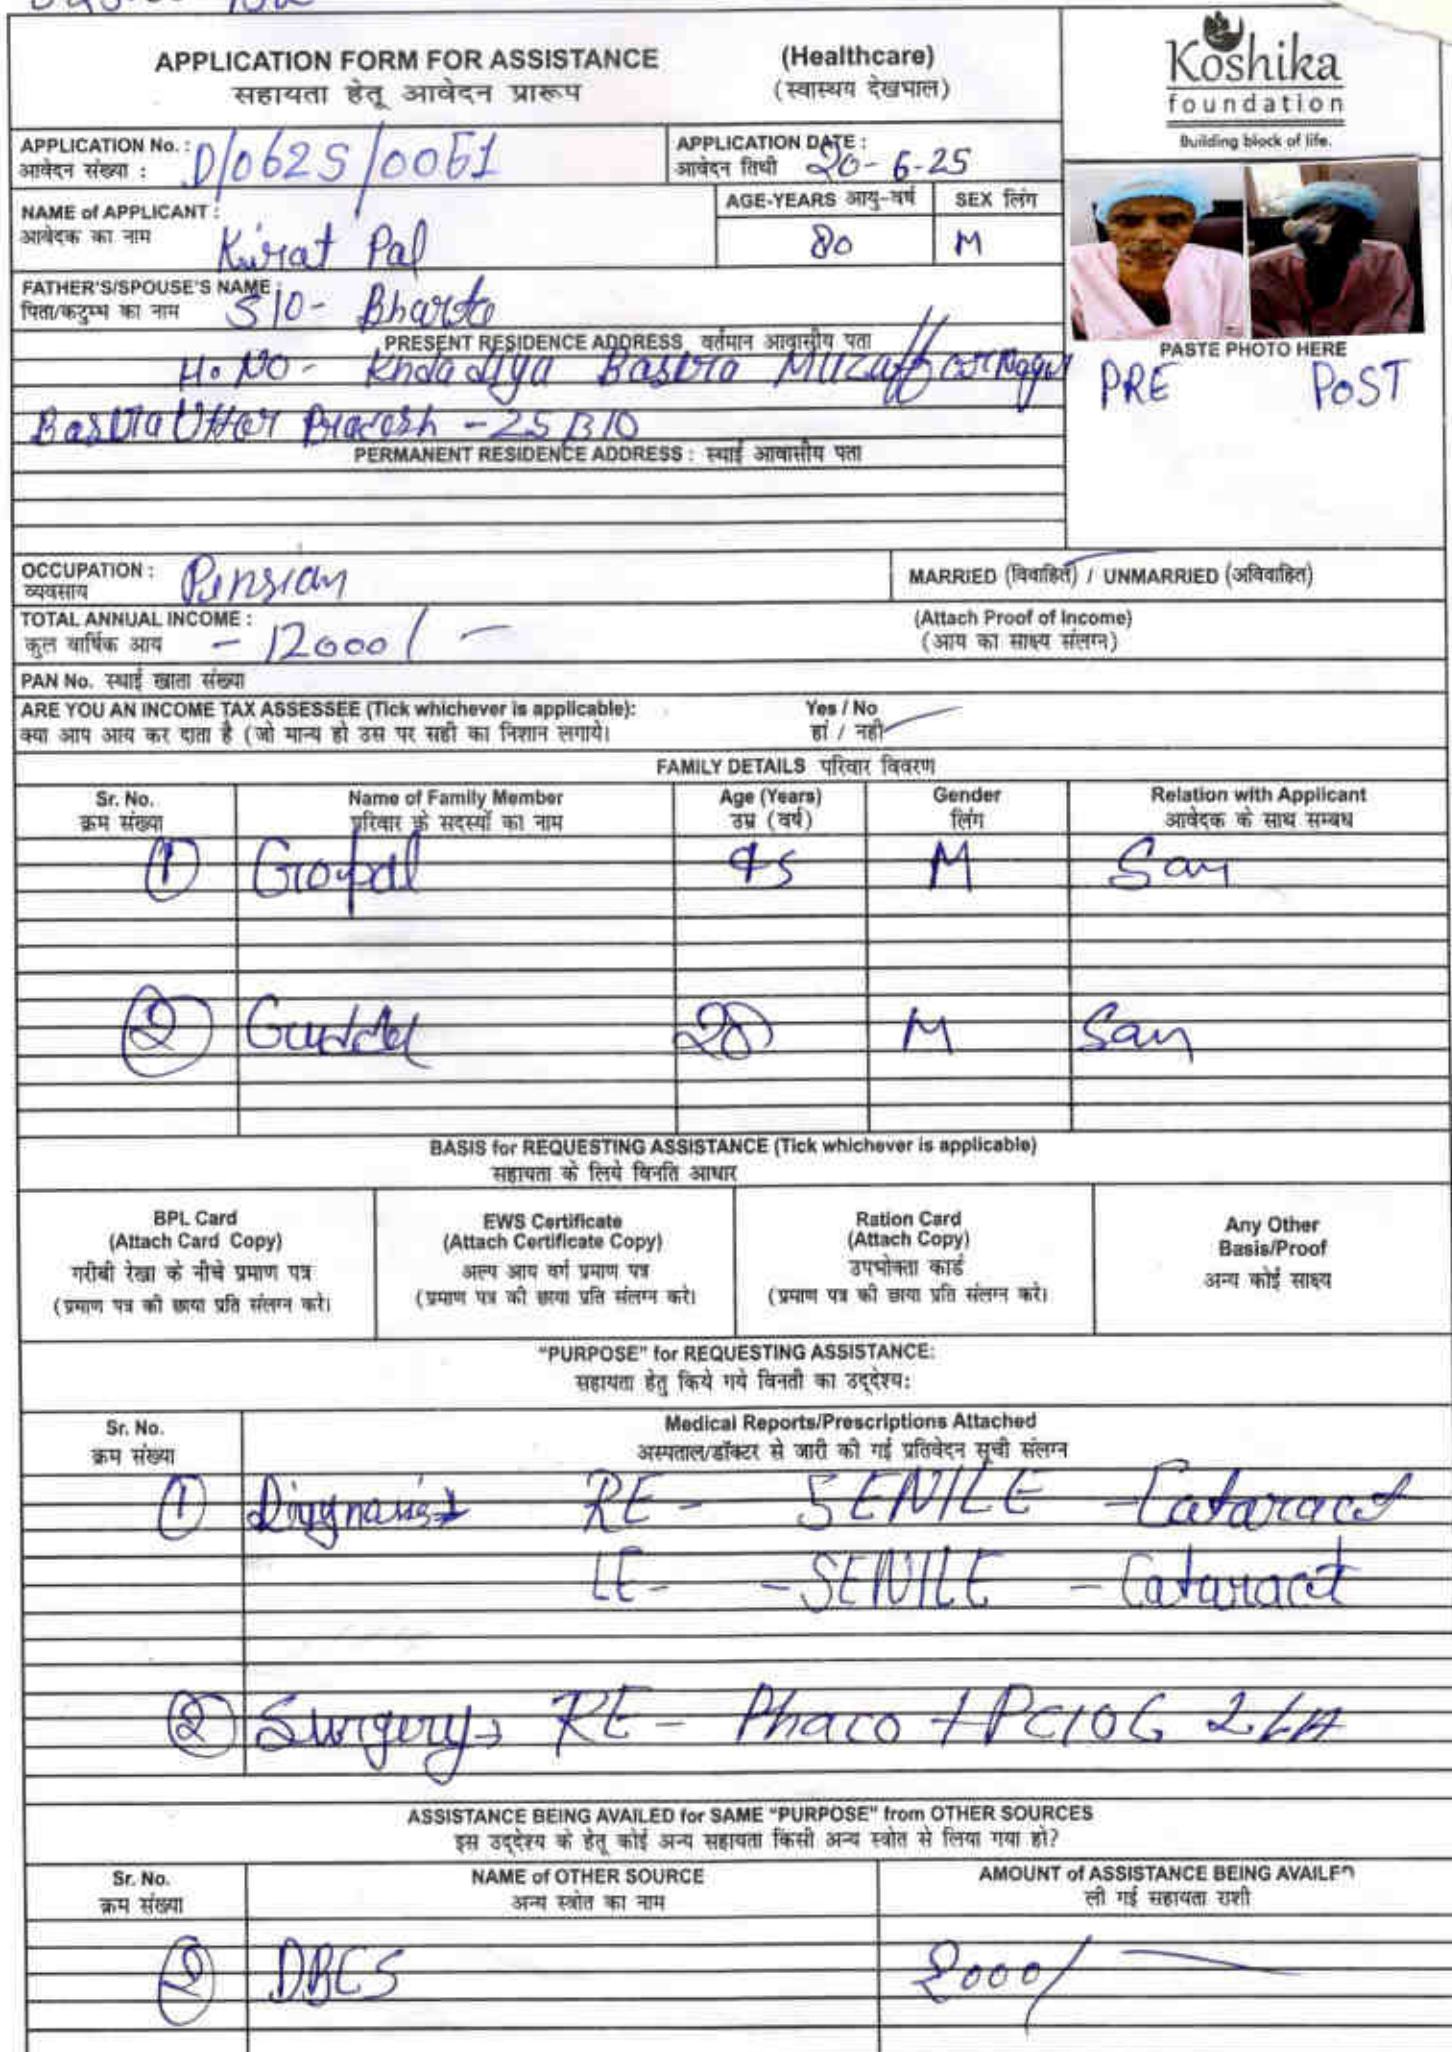 APPLICATION FORM FOR ASSISTANCE (Healthcare)
सहायता हेतू आवेदन प्रारूप (स्वास्थय देखभाल)
Koshika
foundation
Building block of life.
APPLICATION No. : D/0625/0061
आवेदन संख्या :
APPLICATION DATE : 20-6-25
आवेदन तिथी
NAME of APPLICANT : Kirat Pal
आवेदक का नाम
AGE-YEARS आयु-वर्ष 80
SEX लिंग M
FATHER'S/SPOUSE'S NAME : S/O- Bharto
पिता/कटुम्भ का नाम
PRESENT RESIDENCE ADDRESS वर्तमान आवासीय पता
H. NO- Baswa Muzaffarnagar
Uttar Pradesh
PERMANENT RESIDENCE ADDRESS : स्थाई आवासीय पता
PASTE PHOTO HERE
PRE POST
OCCUPATION : Pension
व्यवसाय
MARRIED (विवाहित) / UNMARRIED (अविवाहित)
TOTAL ANNUAL INCOME : - 12000/-
कुल वार्षिक आय
(Attach Proof of Income)
(आय का साक्ष्य संलग्न)
PAN No. स्थाई खाता संख्या
ARE YOU AN INCOME TAX ASSESSEE (Tick whichever is applicable): Yes / No
क्या आप आय कर दाता है (जो मान्य हो उस पर सही का निशान लगाये। हां / नही
FAMILY DETAILS परिवार विवरण
Sr. No. Name of Family Member Age (Years) Gender Relation with Applicant
क्रम संख्या परिवार के सदस्यों का नाम उम्र (वर्ष) लिंग आवेदक के साथ सम्बध
1 Gopal 45 M Son
2 Guddu 28 M Son
BASIS for REQUESTING ASSISTANCE (Tick whichever is applicable)
सहायता के लिये विनति आधार
BPL Card
(Attach Card Copy)
गरीबी रेखा के नीचे प्रमाण पत्र
(प्रमाण पत्र की छाया प्रति संलग्न करे।
EWS Certificate
(Attach Certificate Copy)
अल्प आय वर्ग प्रमाण पत्र
(प्रमाण पत्र की छाया प्रति संलग्न करे।
Ration Card
(Attach Copy)
उपभोक्ता कार्ड
(प्रमाण पत्र की छाया प्रति संलग्न करे।
Any Other
Basis/Proof
अन्य कोई साक्ष्य
"PURPOSE" for REQUESTING ASSISTANCE:
सहायता हेतु किये गये विनती का उद्देश्य:
Sr. No. Medical Reports/Prescriptions Attached
क्रम संख्या अस्पताल/डॉक्टर से जारी की गई प्रतिवेदन सूची संलग्न
1 Diagnosis RE- SENILE -Cataract
LE- -SENILE -Cataract
2 Surgery RE- Phaco + PCIOL
ASSISTANCE BEING AVAILED for SAME "PURPOSE" from OTHER SOURCES
इस उद्देश्य के हेतू कोई अन्य सहायता किसी अन्य स्त्रोत से लिया गया हो?
Sr. No. NAME of OTHER SOURCE AMOUNT of ASSISTANCE BEING AVAILED
क्रम संख्या अन्य स्त्रोत का नाम ली गई सहायता राशी
2 DBCS 2000/-